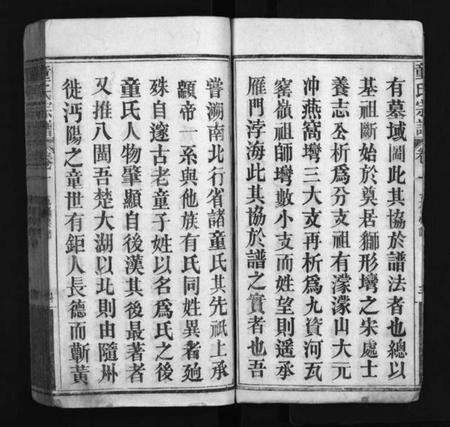 有墓域圖此其協於譜法者也總以
基祖斷始於奠居獅形塆之朱處士
養志公析爲分支祖有濛濛山大元
冲燕窩塆三大支再析爲九資河瓦
窰嶺祖師塆數小支而姓望則遥承
雁門浡海此其協於譜之實者也吾
嘗溯南北行省諸童氏其先祇上承
顓帝一系與他族有氏同姓異者逈
殊自邃古老童子姓以名爲氏之後
童氏人物肇顯自後漢其後最著者
又推八閩吾楚大湖以北則由隨州
徙沔陽之童世有鉅人長德而蘄黃
童氏宗譜